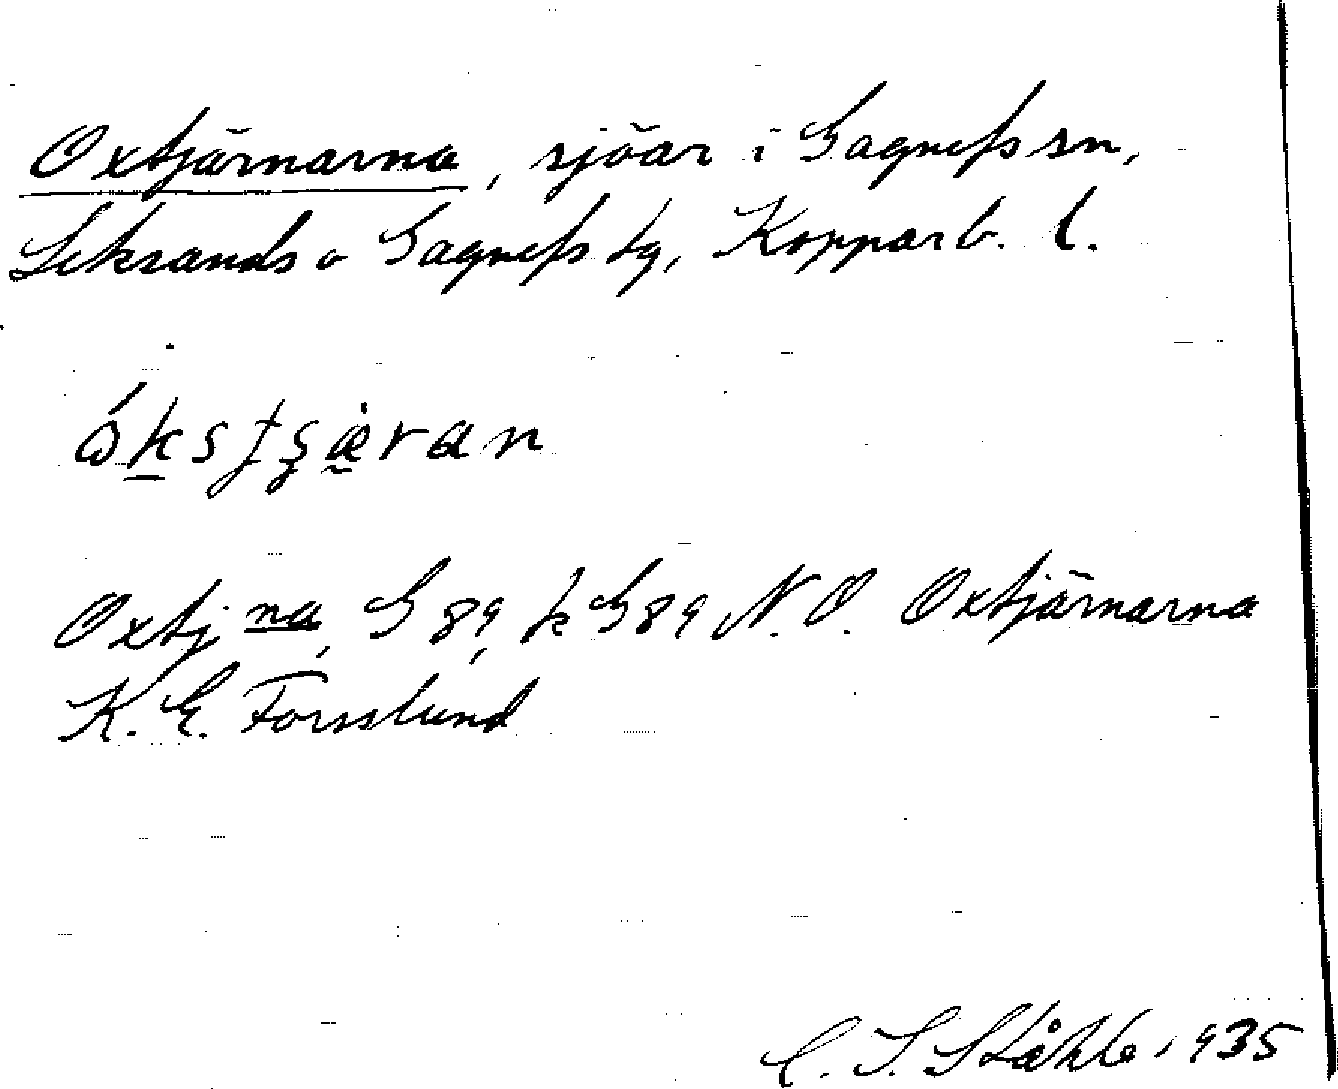 Oxtjärnarna, sjöar i Gagnefs sn,
Leksands o Gagnefs tg, Kopparb. l.
ókstʂæ̀ran
Oxtj na, G 89, k G 89 N. O. Oxtjärnarna
K. E. Forsslund
C. I. Ståhle 1935